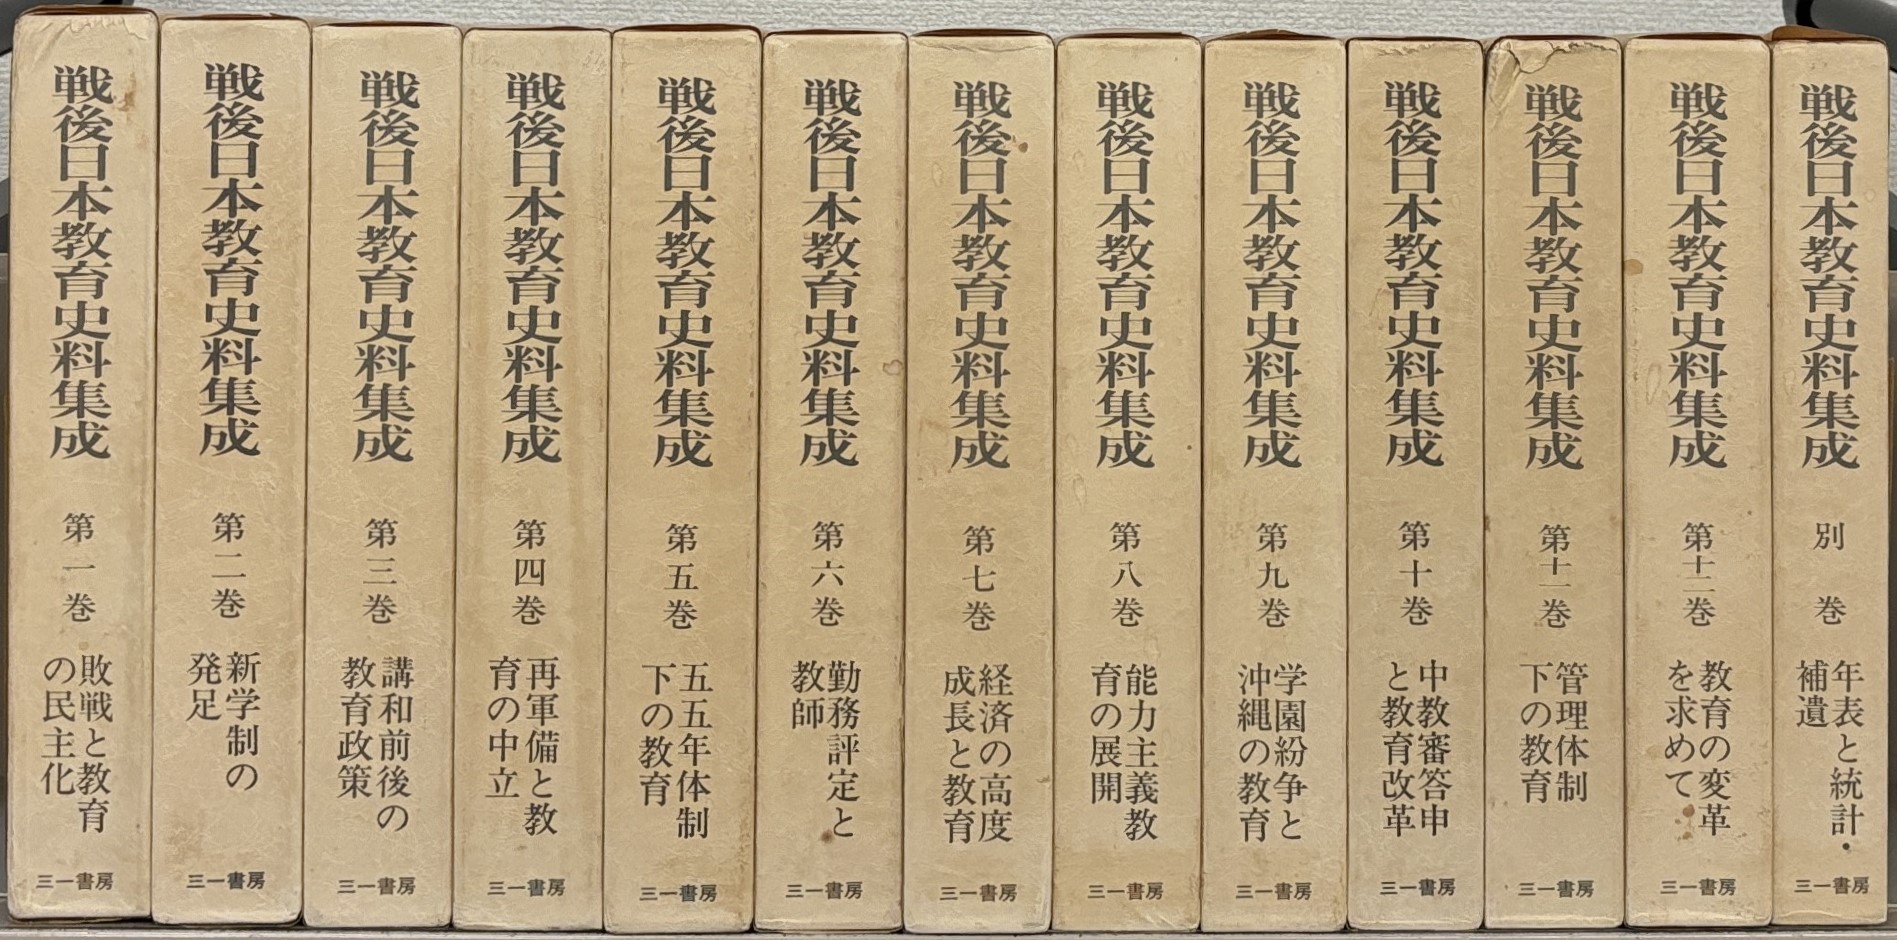 戦後日本教育史料集成
第一巻
敗戦と教育
の民主化
三一書房
戦後日本教育史料集成
第二巻
新学制の
発足
三一書房
戦後日本教育史料集成
第三巻
講和前後の
教育政策
三一書房
戦後日本教育史料集成
第四巻
再軍備と教
育の中立
三一書房
戦後日本教育史料集成
第五巻
五五年体制
下の教育
三一書房
戦後日本教育史料集成
第六巻
勤務評定と
教師
三一書房
戦後日本教育史料集成
第七巻
経済の高度
成長と教育
三一書房
戦後日本教育史料集成
第八巻
能力主義教
育の展開
三一書房
戦後日本教育史料集成
第九巻
学園紛争と
沖縄の教育
三一書房
戦後日本教育史料集成
第十巻
中教審答申
と教育改革
三一書房
戦後日本教育史料集成
第十一巻
管理体制
下の教育
三一書房
戦後日本教育史料集成
第十二巻
教育の変革
を求めて
三一書房
戦後日本教育史料集成
別巻
年表と統計・
補遺
三一書房